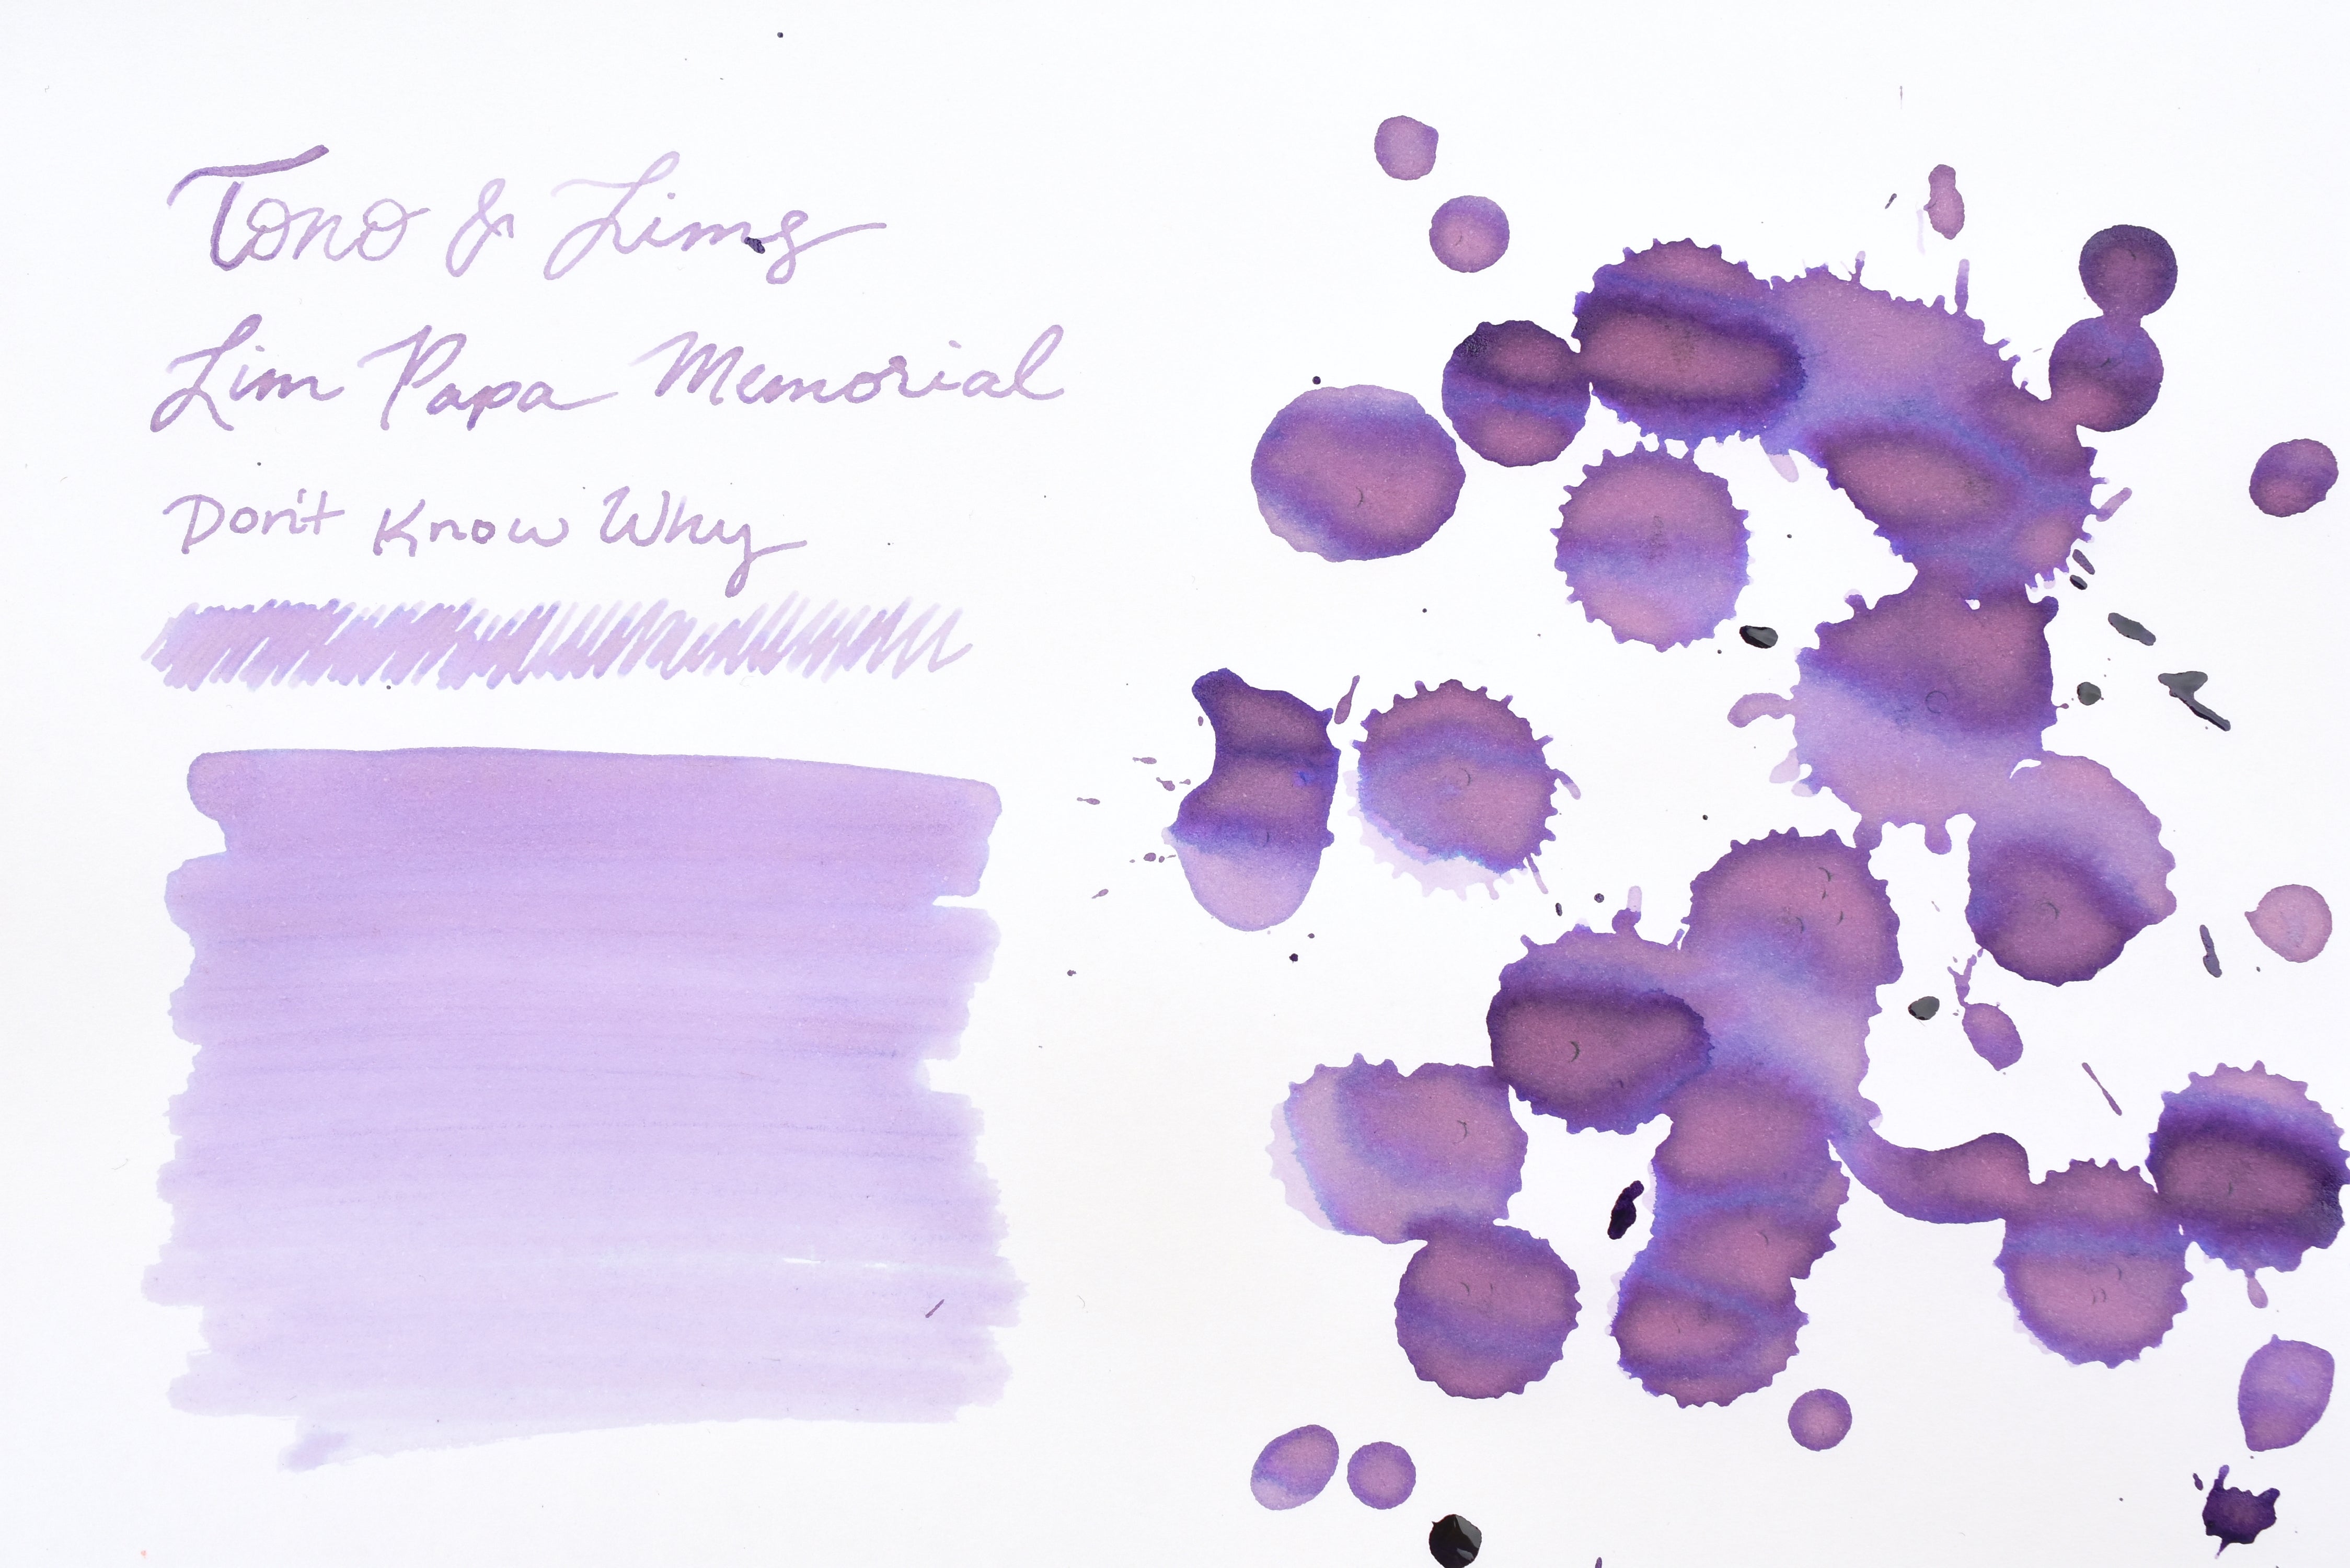 Tono & Lims
Lim Papa Memorial
Don't Know Why